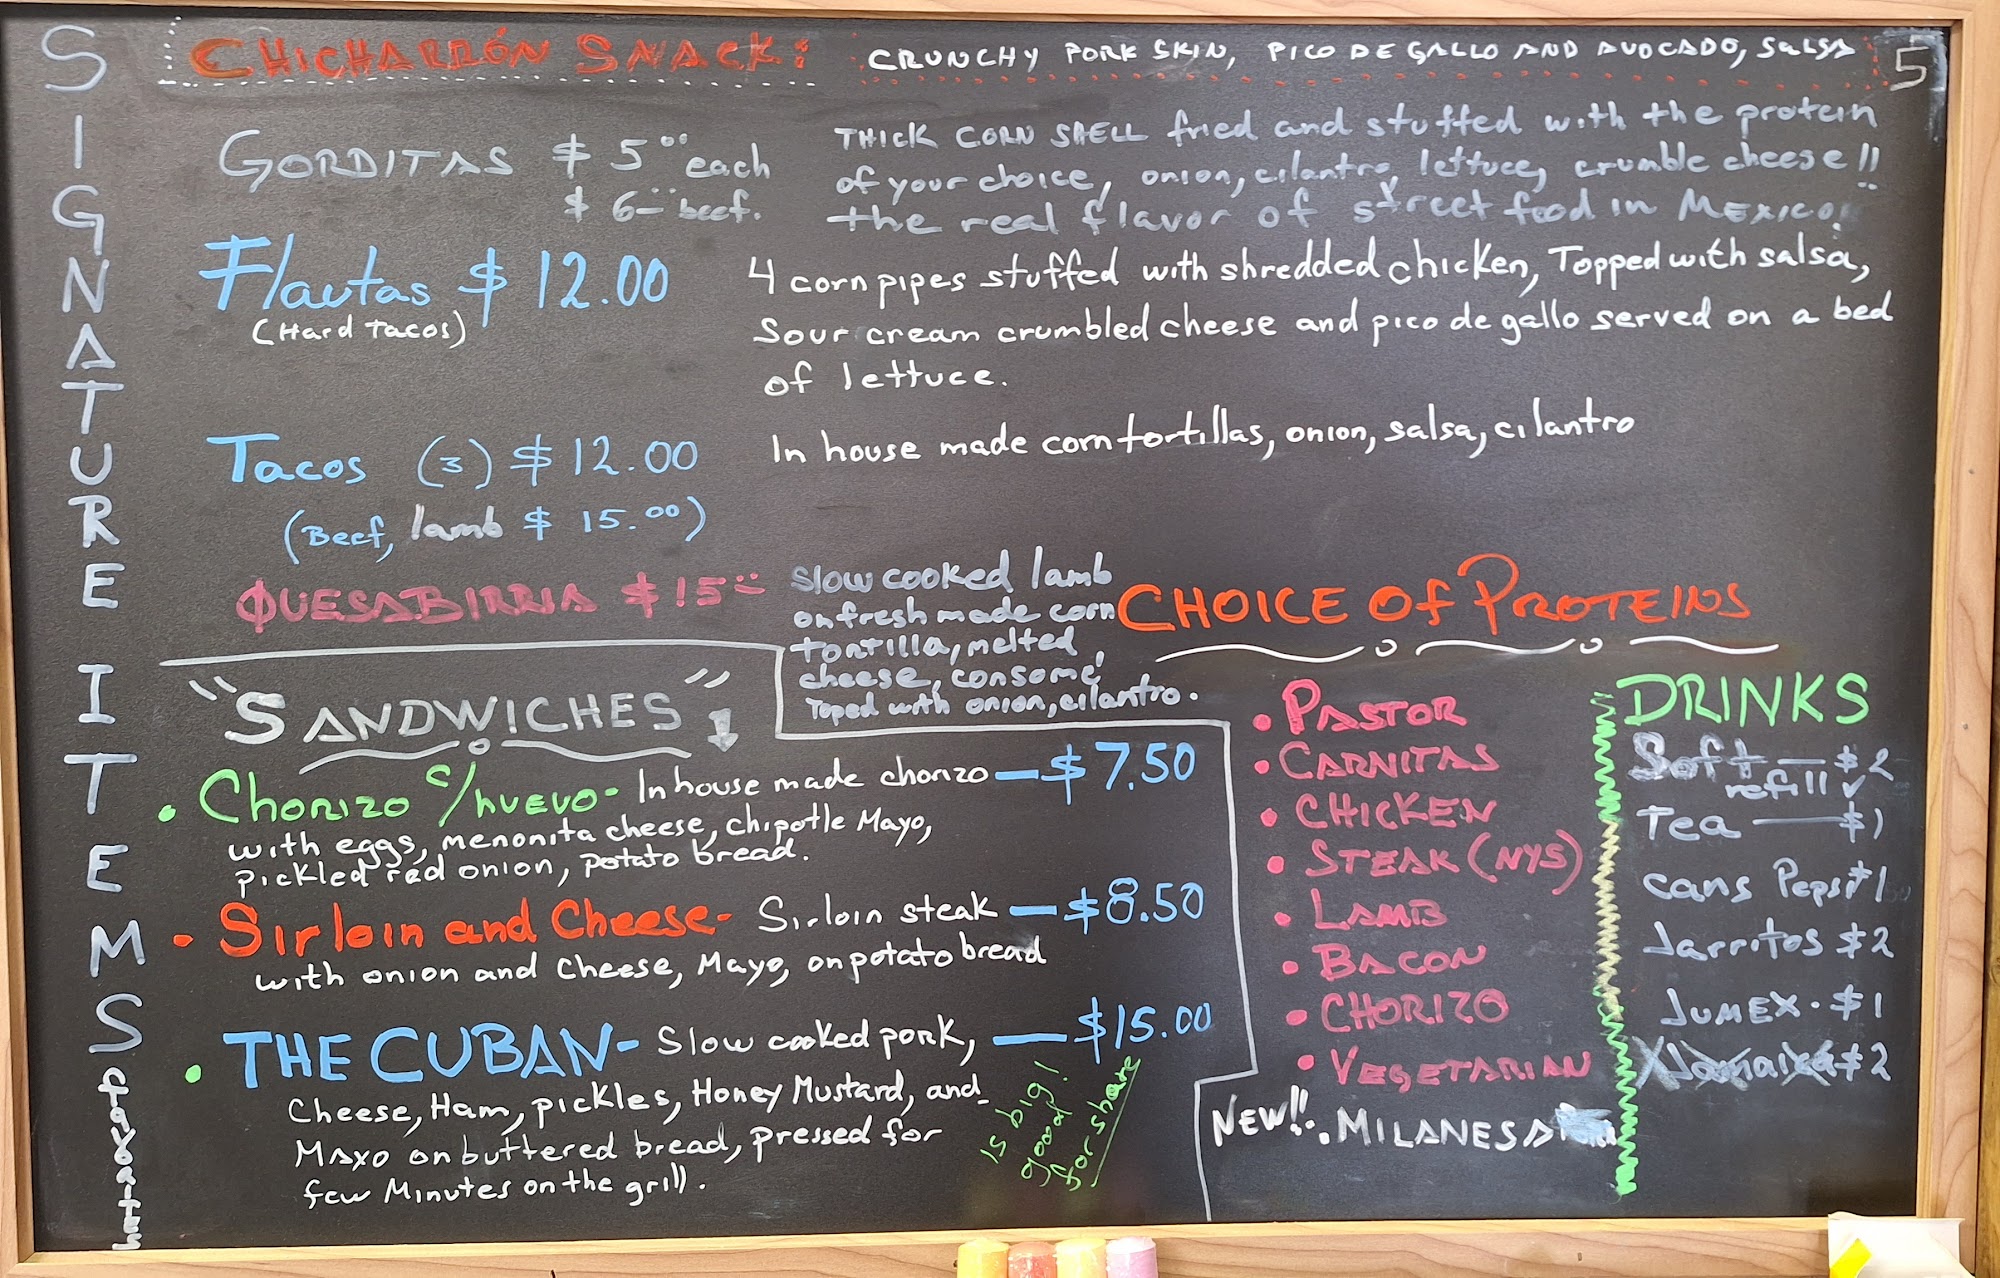 SIGNATURE ITEMS
CHICHARRÓN SNACK: CRUNCHY PORK SKIN, PICO DE GALLO AND AVOCADO, SALSA 5
GORDITAS $ 5°° each
$ 6 beef.
THICK CORN SHELL fried and stuffed with the protein
of your choice, onion, cilantro, lettuce, crumble cheese!!
the real flavor of street food in MEXICO!
Flautas $ 12.00
(Hard tacos)
4 corn pipes stuffed with shredded chicken, Topped with salsa,
Sour cream crumbled cheese and pico de gallo served on a bed
of lettuce.
Tacos (3) $ 12.00
(Beef, lamb $ 15.00)
In house made corn tortillas, onion, salsa, cilantro
QUESABIRRIA $ 15
Slow cooked lamb
on fresh made corn
tortilla, melted
cheese, consomé
Toped with onion, cilantro.
"SANDWICHES"
• Chorizo c/huevo - In house made chorizo — $ 7.50
with eggs, menonita cheese, chipotle Mayo,
pickled red onion, potato bread.
• Sirloin and Cheese - Sirloin steak — $8.50
with onion and Cheese, Mayo, on potato bread
• THE CUBAN - Slow cooked pork, — $15.00
Cheese, Ham, pickles, Honey Mustard, and
Mayo on buttered bread, pressed for
few Minutes on the grill.
is big!
good
for share
CHOICE OF PROTEINS
• PASTOR
• CARNITAS
• CHICKEN
• STEAK (NYS)
• LAMB
• BACON
• CHORIZO
• VEGETARIAN
NEW!! • MILANESA
DRINKS
Soft — $2
refill ✓
Tea — $1
cans Pepsi $1
Jarritos $2
JUMEX • $1
Jamaica $2